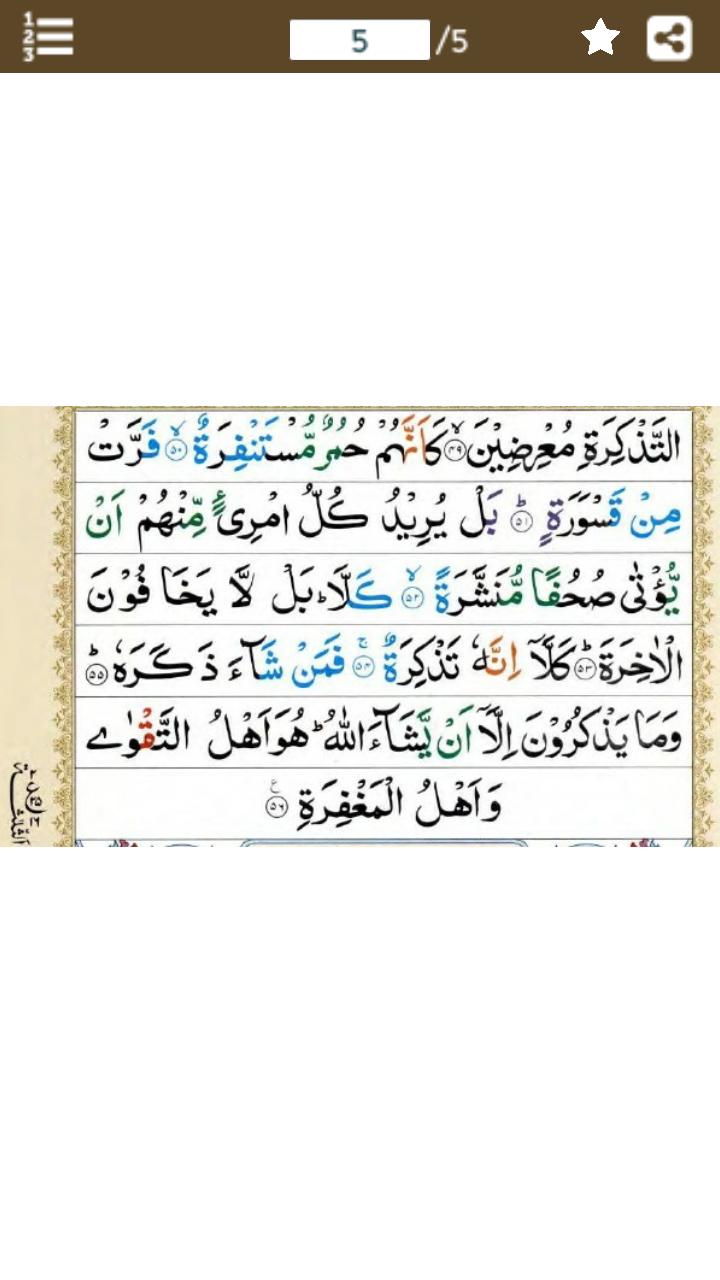 1
2
3
5 /5
التَّذْكِرَةِ مُعْرِضِيْنَ ۙ﴿۴۹﴾ كَاَنَّهُمْ حُمُرٌ مُّسْتَنْفِرَةٌ ۙ﴿۵۰﴾ فَرَّتْ
مِنْ قَسْوَرَةٍ ؕ﴿۵۱﴾ بَلْ يُرِيْدُ كُلُّ امْرِئٍ مِّنْهُمْ اَنْ
يُّؤْتٰى صُحُفًا مُّنَشَّرَةً ۙ﴿۵۲﴾ كَلَّا ؕ بَلْ لَّا يَخَافُوْنَ
الْاٰخِرَةَ ؕ﴿۵۳﴾ كَلَّاۤ اِنَّهٗ تَذْكِرَةٌ ۚ﴿۵۴﴾ فَمَنْ شَآءَ ذَكَرَهٗ ؕ﴿۵۵﴾
وَمَا يَذْكُرُوْنَ اِلَّاۤ اَنْ يَّشَآءَ اللّٰهُ ؕ هُوَ اَهْلُ التَّقْوٰے
وَاَهْلُ الْمَغْفِرَةِ ﴿۵۶﴾ ع